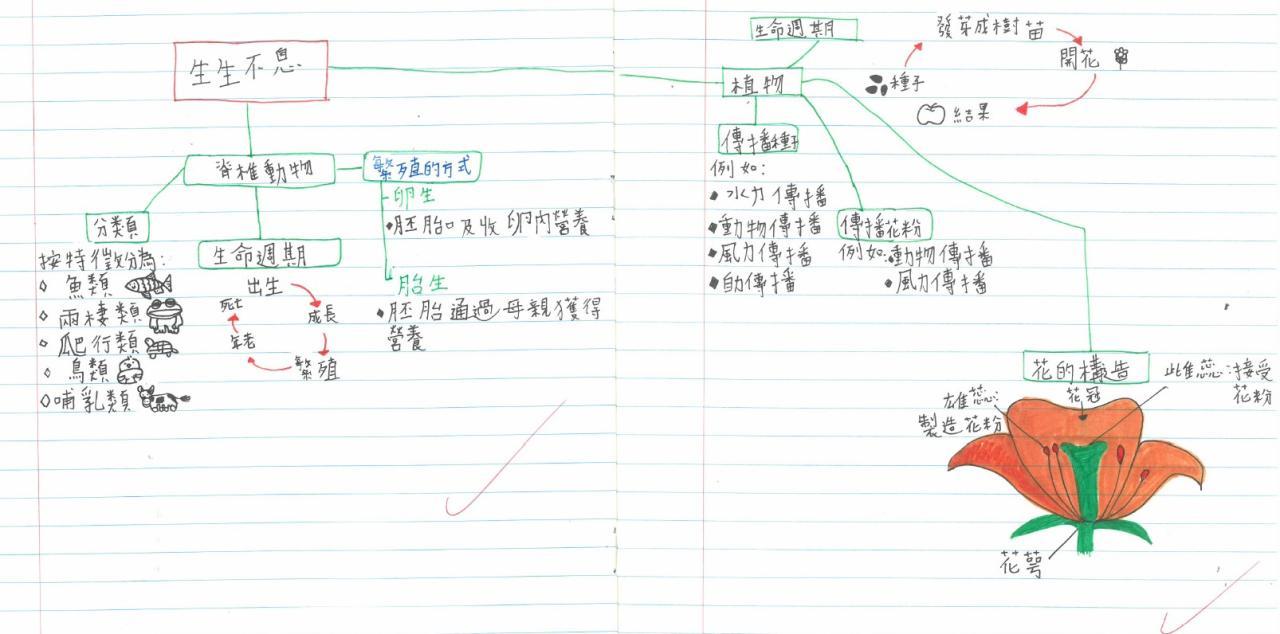 生生不息
脊椎動物
繁殖的方式
卵生
•胚胎吸收卵內營養
胎生
•胚胎通過母親獲得
營養
分類
按特徵分為:
魚類
兩棲類
爬行類
鳥類
哺乳類
生命週期
出生
成長
繁殖
年老
死亡
生命週期
植物
種子
發芽成樹苗
開花
結果
傳播種子
例如:
•水力傳播
•動物傳播
•風力傳播
•自傳播
傳播花粉
例如:•動物傳播
•風力傳播
花的構造
花冠
雄蕊:
製造花粉
雌蕊:接受
花粉
花萼